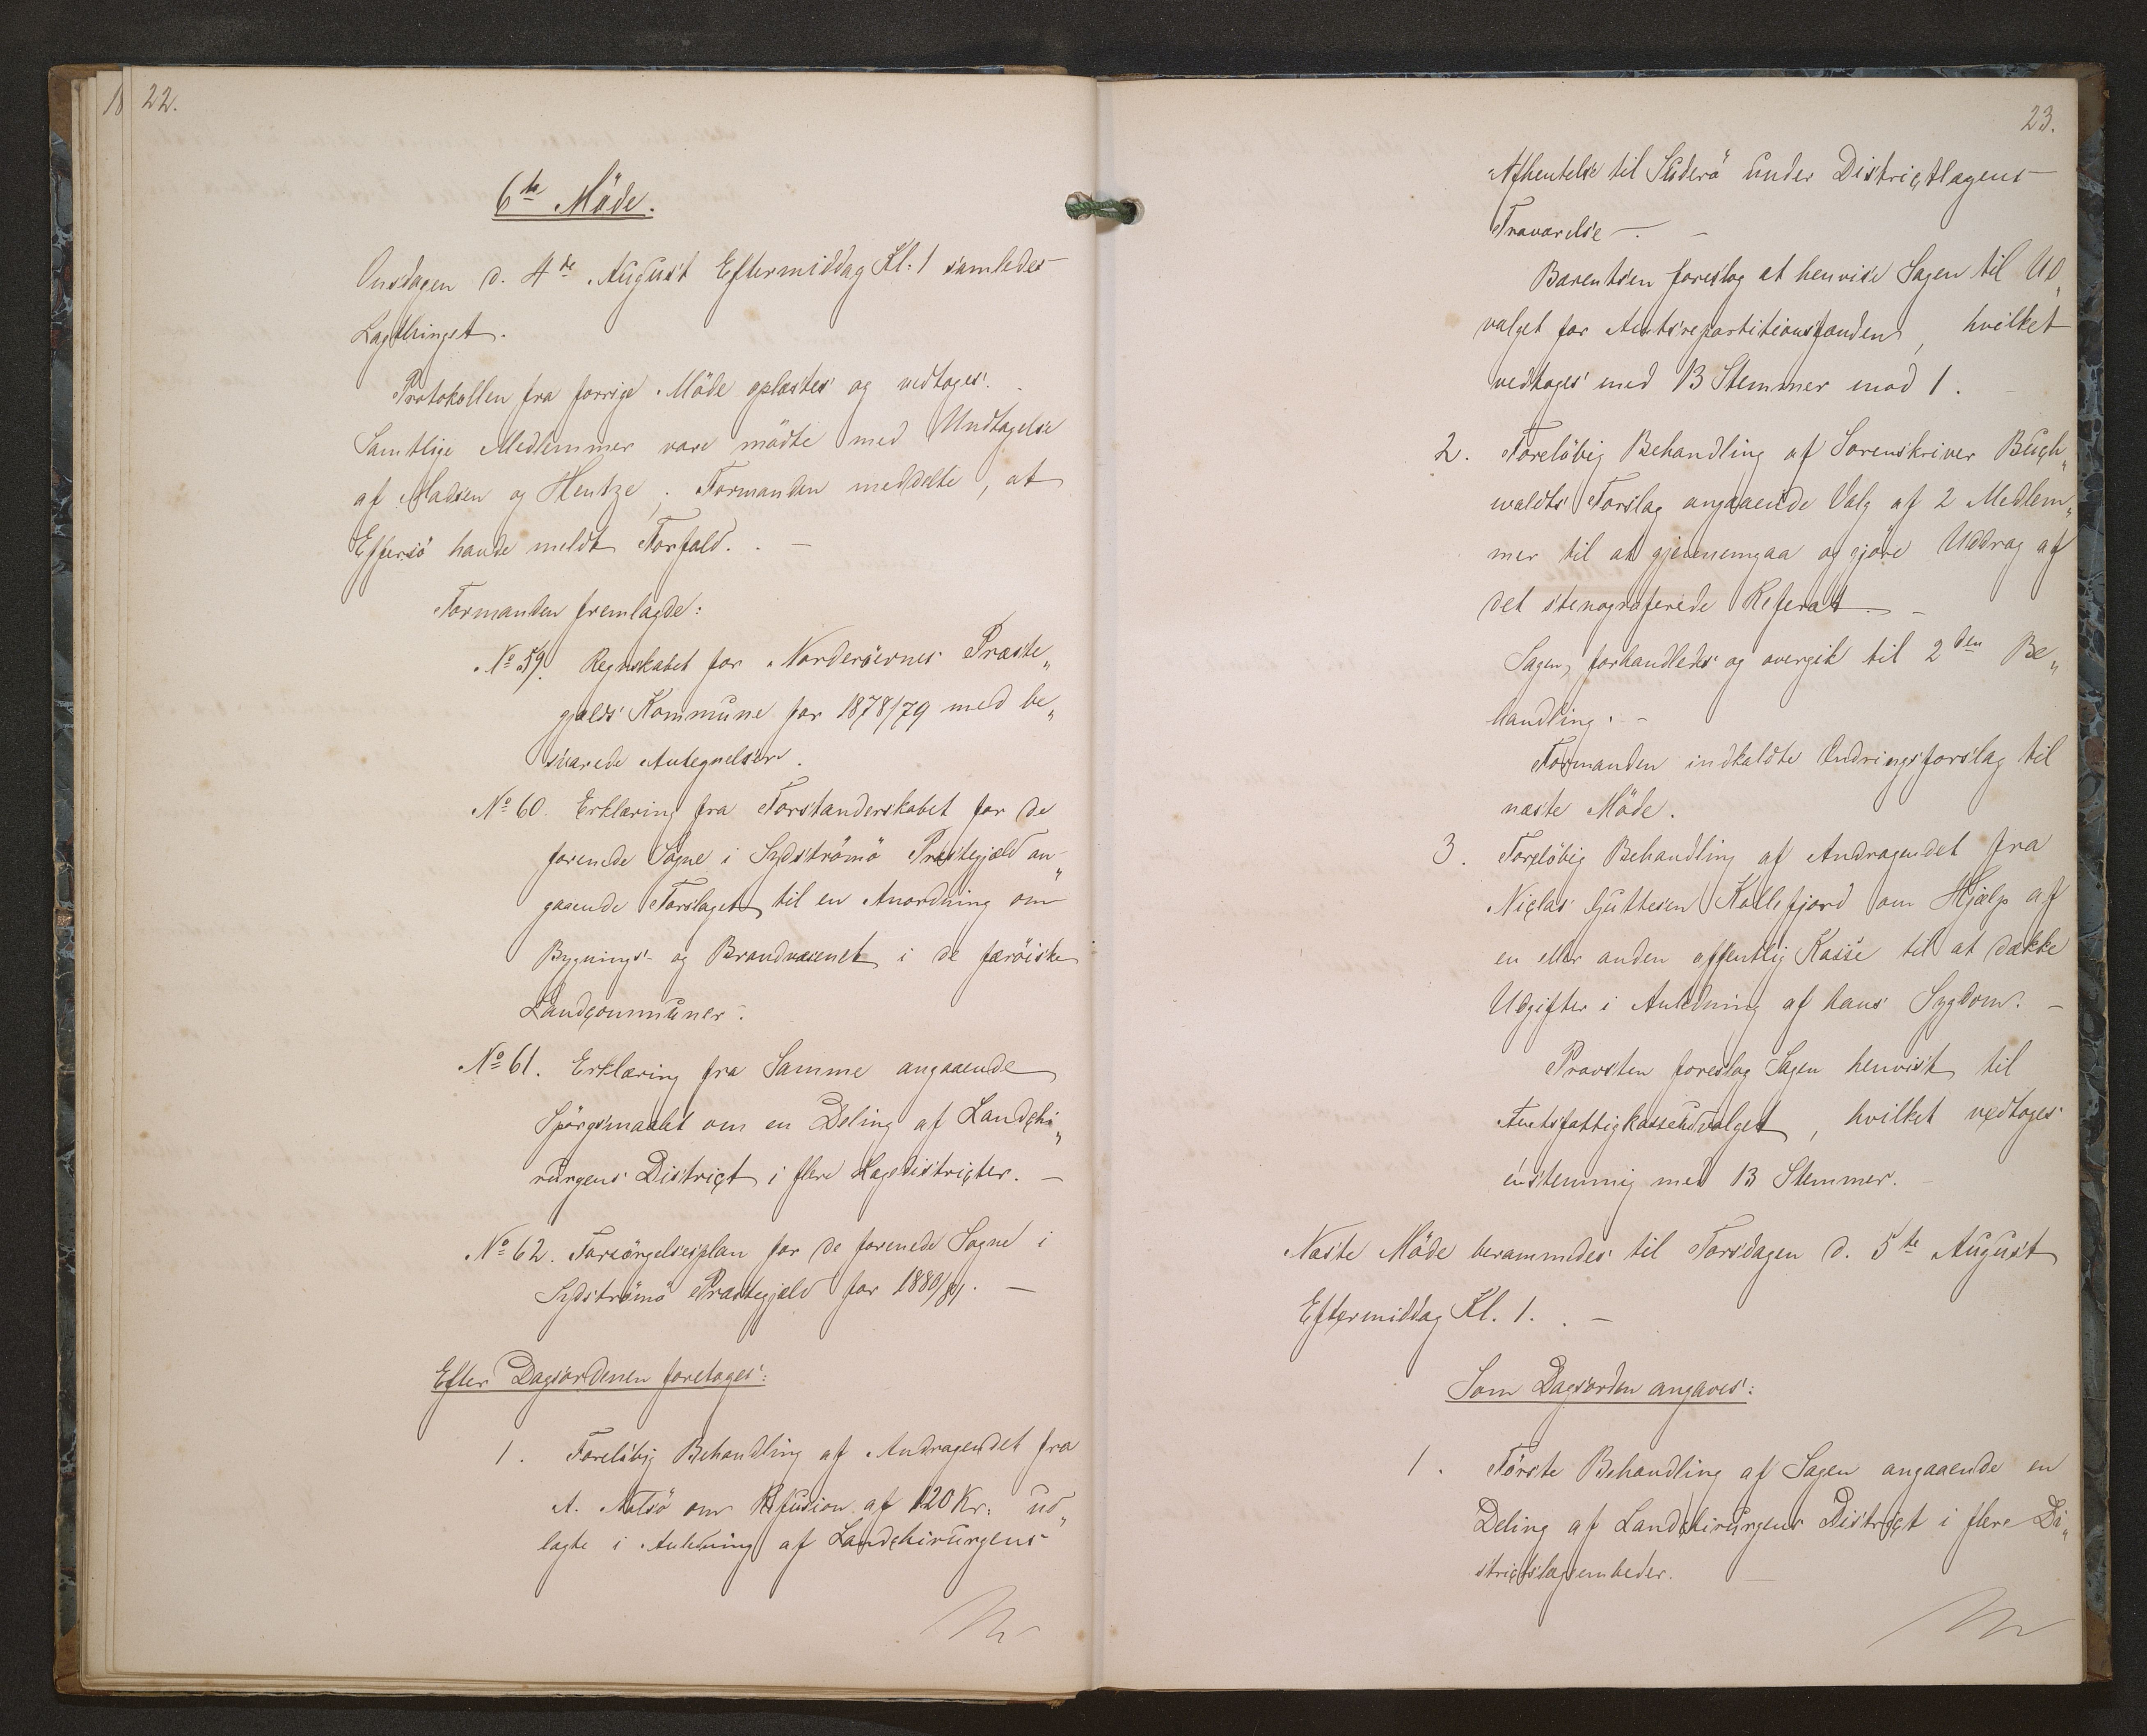 18 22.
6te Möde.
Onsdagen d. 4de August Eftermiddag Kl. 1 samledes
Lagthinget.
Protokollen fra forrige Möde oplæstes og vedtoges.
Samtlige Medlemmer vare mödte med Undtagelse
af Madsen og Hentze. Formanden meddelte, at
Effersö havde meldt Forfald. . —
Formanden fremlagde:
No 59. Regnskabet for Norderöernes Præste„
gjælds Kommune for 1878/79 med be„
svarede Antegnelser.
No 60. Erklæring fra Forstanderskabet for de
forenede Sogne i Sydströmö Præstegjæld an„
gaaende Forslaget til en Anordning om
Bygnings- og Brandvæsenet i de færöiske
Landcommuner.
No 61. Erklæring fra Samme angaaende
Spörgsmaalet om en Deling af Landchi„
rurgens District i flere Lægedistricter. —
No 62. Forsörgelsesplan for de forenede Sogne i
Sydströmö Præstegjæld for 1880/81. —
Efter Dagsordenen foretoges:
1. Forelöbig Behandling af Andragendet fra
A. Matsö om Refusion af 120 Kr. ud„
lagte i Anledning af Landchirurgens
23.
Afhentelse til Süderö under Districtlægens
Fraværelse —. —
Barentsen foreslog at henvise Sagen til Ud„
valget for Amtsrepartitionsfonden, hvilket
vedtoges med 13 Stemmer mod 1. —
2. Forelöbig Behandling af Sorenskriver Buch„
waldts Forslag angaaende Valg af 2 Medlem„
mer til at gjennemgaa og gjöre Uddrag af
det stenograferede Referat. —
Sagen forhandledes og overgik til 2den Be„
handling. —
Formanden indkaldte Ændringsforslag til
næste Möde.
3. Forelöbig Behandling af Andragendet fra
Niclas Guttesen Kollefjord om Hjælp af
en eller anden offentlig Kasse til at dække
Udgifter i Anledning af hans Sygdom. —
Provsten foreslog Sagen henvist til
Amtsfattigkasseudvalget, hvilket vedtoges
énstemmig med 13 Stemmer. —
Næste Möde berammedes til Torsdagen d. 5te August
Eftermiddag Kl. 1. . —
Som Dagsorden angaves:
1. Förste Behandling af Sagen angaaende en
Deling af Landchirurgens District i flere Di„
strictslægeembeder. —